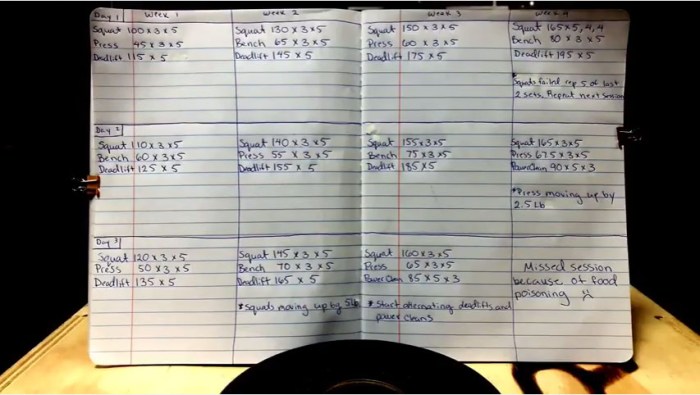 Day 1
Week 1
Week 2
Week 3
Week 4
Squat 100 x 3 x 5
Press 45 x 3 x 5
Deadlift 115 x 5
Squat 130 x 3 x 5
Bench 65 x 3 x 5
Deadlift 145 x 5
Squat 150 x 3 x 5
Press 60 x 3 x 5
Deadlift 175 x 5
Squat 165 x 5, 4, 4
Bench 80 x 3 x 5
Deadlift 195 x 5
*Squats failed rep 5 of last
2 sets. Repeat next session
Day 2
Squat 110 x 3 x 5
Bench 60 x 3 x 5
Deadlift 125 x 5
Squat 140 x 3 x 5
Press 55 x 3 x 5
Deadlift 155 x 5
Squat 155 x 3 x 5
Bench 75 x 3 x 5
Deadlift 185 x 5
Squat 165 x 3 x 5
Press 67.5 x 3 x 5
PowerClean 90 x 5 x 3
*Press moving up by
2.5 Lb
Day 3
Squat 120 x 3 x 5
Press 50 x 3 x 5
Deadlift 135 x 5
Squat 145 x 3 x 5
Bench 70 x 3 x 5
Deadlift 165 x 5
*Squats moving up by 5lb
Squat 160 x 3 x 5
Press 65 x 3 x 5
Power Clean 85 x 5 x 3
*Start alternating deadlifts and
power cleans
Missed session
because of food
poisoning